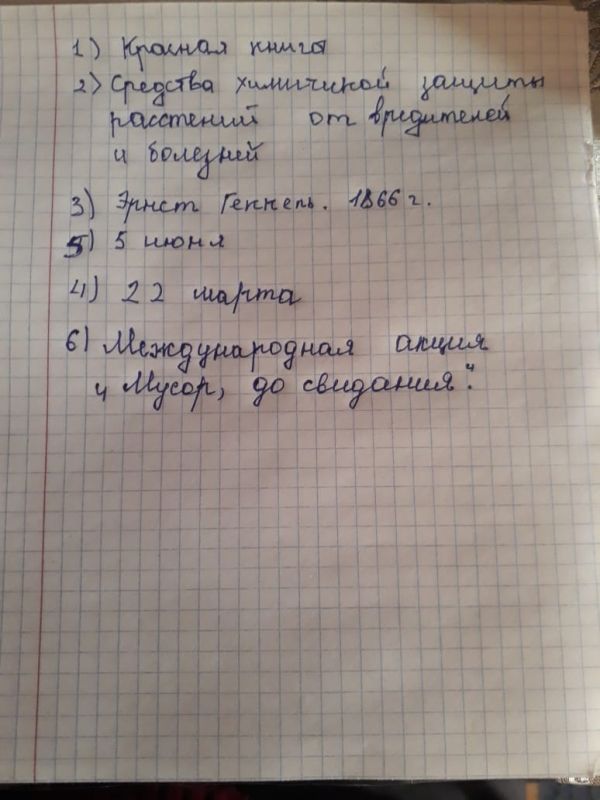 1) Красная книга
2) Средства химичиской защиты
расстений от вредителей
и болезней
3) Эрнст Геккель. 1866 г.
5) 5 июня
4) 22 марта
6) Международная акция
„Мусор, до свидания".